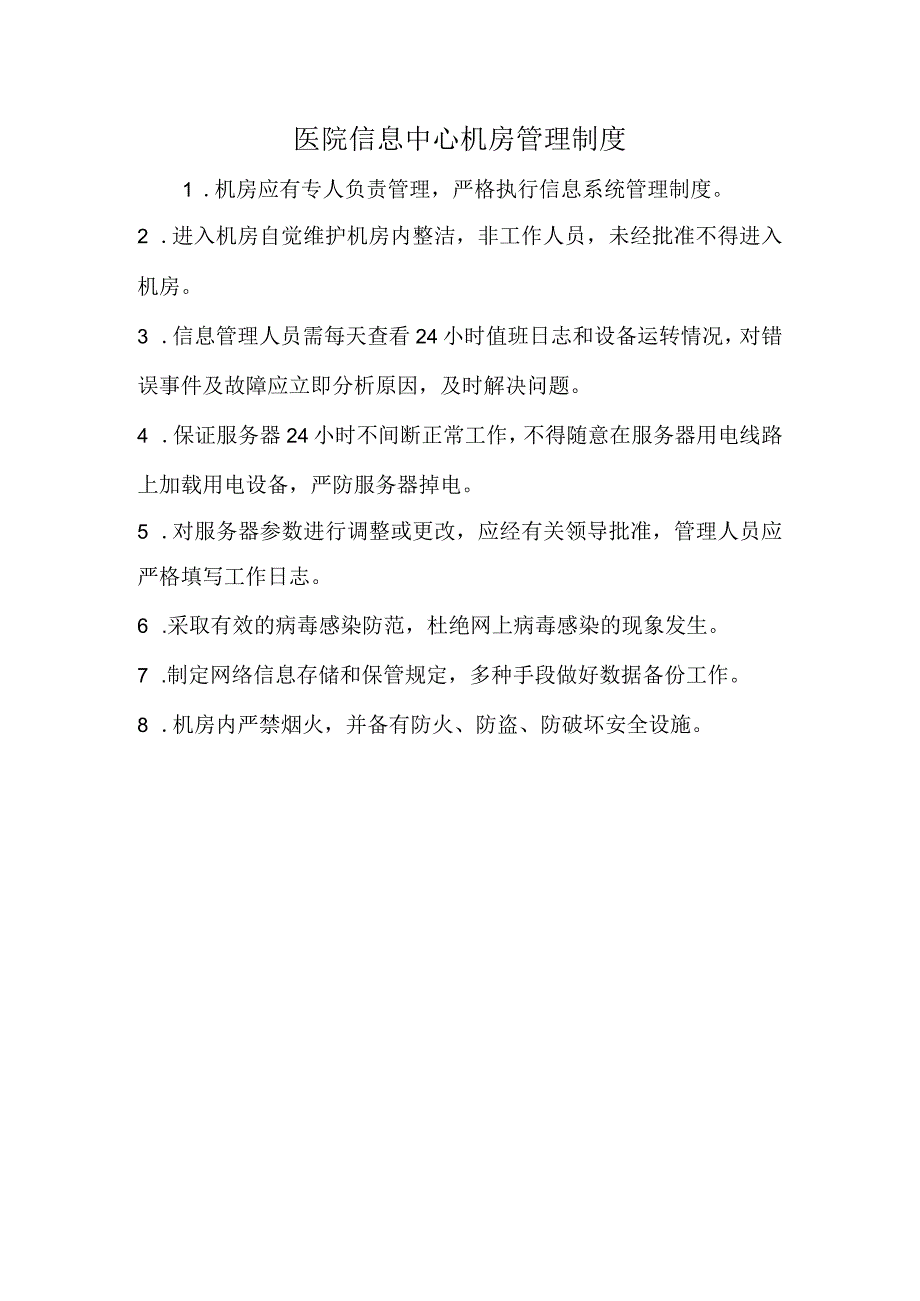 医院信息中心机房管理制度
1 .机房应有专人负责管理，严格执行信息系统管理制度。
2 .进入机房自觉维护机房内整洁，非工作人员，未经批准不得进入
机房。
3 .信息管理人员需每天查看24小时值班日志和设备运转情况，对错
误事件及故障应立即分析原因，及时解决问题。
4 .保证服务器24小时不间断正常工作，不得随意在服务器用电线路
上加载用电设备，严防服务器掉电。
5 .对服务器参数进行调整或更改，应经有关领导批准，管理人员应
严格填写工作日志。
6 .采取有效的病毒感染防范，杜绝网上病毒感染的现象发生。
7 .制定网络信息存储和保管规定，多种手段做好数据备份工作。
8 .机房内严禁烟火，并备有防火、防盗、防破坏安全设施。